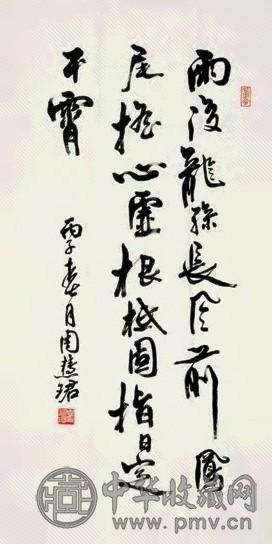 雨後龍孫長風前鳳
尾搖心虛根柢固指日定
干霄
丙子春月周慧珺
中华收藏网
www.pmv.cn